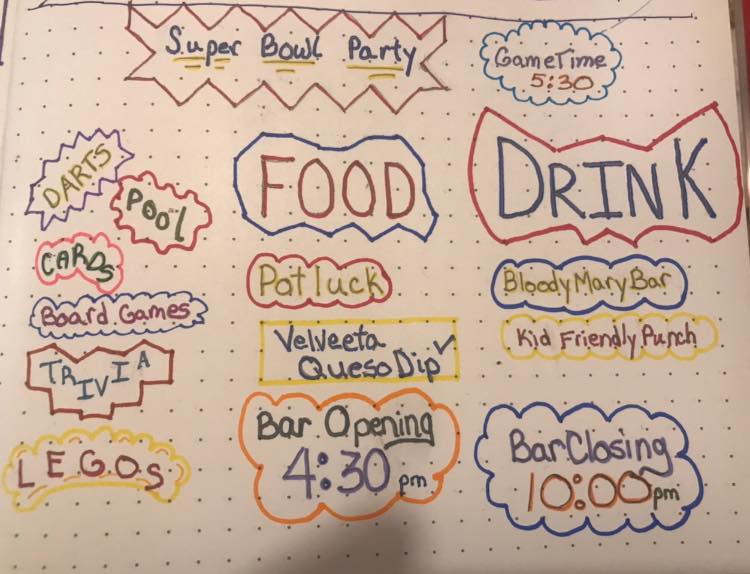 Super Bowl Party
GameTime
5:30
DARTS
POOL
CARDS
Board Games
TRIVIA
LEGOS
FOOD
Potluck
Velveeta
Queso Dip
Bar Opening
4:30 pm
DRINK
Bloody Mary Bar
Kid Friendly Punch
Bar Closing
10:00 pm